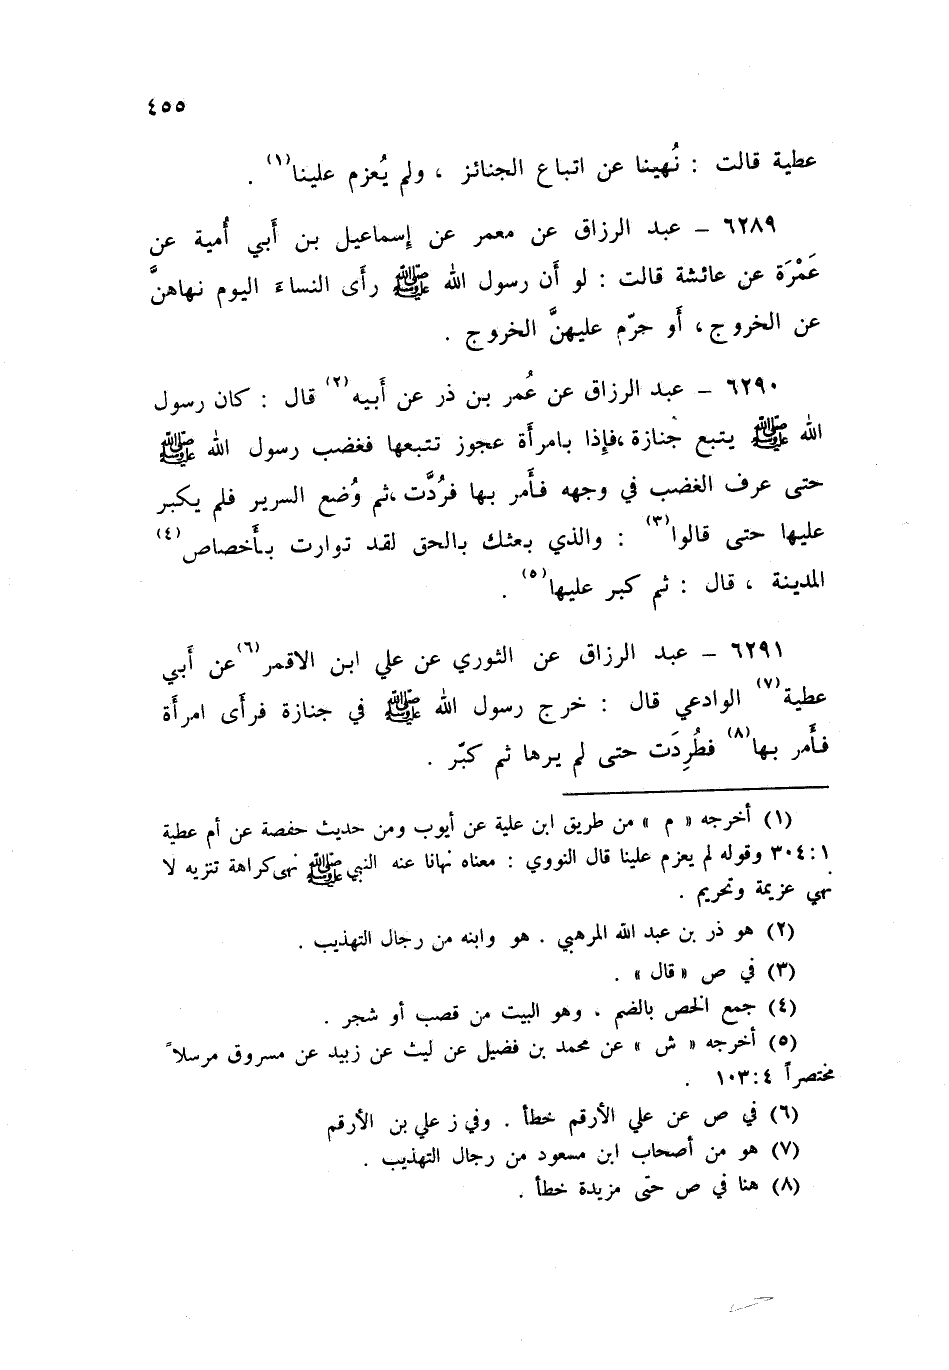 ٤٥٥
عطية قالت : نُهينا عن اتباع الجنائز ، ولم يُعزم علينا(١) .
٦٢٨٩ – عبد الرزاق عن معمر عن إسماعيل بن أَبي أُمية عن
عَمْرَة عن عائشة قالت : لو أَن رسول الله ﷺ رأَى النساءَ اليوم نهاهنَّ
عن الخروج، أَو حرّم عليهنَّ الخروج .
٦٢٩٠ – عبد الرزاق عن عُمر بن ذر عن أَبيه(٢) قال : كان رسول
الله ﷺ يتبع جنازة ،فإِذا بامرأَة عجوز تتبعها فغضب رسول الله ﷺ
حتى عرف الغضب في وجهه فأَمر بها فرُدَّت ،ثم وُضع السرير فلم يكبر
عليها حتى قالوا(٣) : والذي بعثك بالحق لقد توارت بأَخصاص(٤)
المدينة ، قال : ثم كبر عليها(٥) .
٦٢٩١ – عبد الرزاق عن الثوري عن علي ابن الاقمر(٦) عن أَبي
عطية(٧) الوادعي قال : خرج رسول الله ﷺ في جنازة فرأَى امرأَة
فأَمر بها(٨) فطُرِدَت حتى لم يرها ثم كبّر .
(١) أخرجه « م » من طريق ابن علية عن أيوب ومن حديث حفصة عن أم عطية
٣٠٤:١ وقوله لم يعزم علينا قال النووي : معناه نهانا عنه النبي ﷺ نهي كراهة تنزيه لا
نهي عزيمة وتحريم .
(٢) هو ذر بن عبد الله المرهبي . هو وابنه من رجال التهذيب .
(٣) في ص « قال » .
(٤) جمع الخص بالضم ، وهو البيت من قصب أو شجر .
(٥) أخرجه « ش » عن محمد بن فضيل عن ليث عن زبيد عن مسروق مرسلاً
مختصراً ١٠٣:٤ .
(٦) في ص عن علي الأرقم خطأ . وفي ز علي بن الأرقم
(٧) هو من أصحاب ابن مسعود من رجال التهذيب .
(٨) هنا في ص حتى مزيدة خطأ .